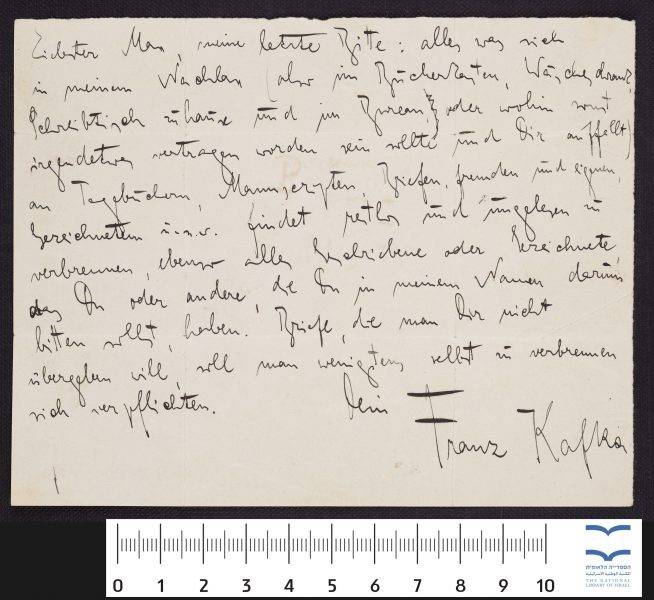 Liebster Max, meine letzte Bitte: alles was sich
in meinem Nachlass (also im Bücherkasten, Wäscheschrank,
Schreibtisch zuhause und im Bureau, oder wohin sonst
irgendetwas vertragen worden sein sollte und Dir auffällt)
an Tagebüchern, Manuscripten, Briefen, fremden und eigenen,
Gezeichnetem u.s.w. findet restlos und ungelesen zu
verbrennen, ebenso alles Geschriebene oder Gezeichnete,
das Du oder andere, die Du in meinem Namen darum
bitten sollst, haben. Briefe, die man Dir nicht
übergeben will, soll man wenigstens selbst zu verbrennen
sich verpflichten.
Dein
Franz Kafka
0 1 2 3 4 5 6 7 8 9 10
הספרייה הלאומית
THE NATIONAL
LIBRARY OF ISRAEL